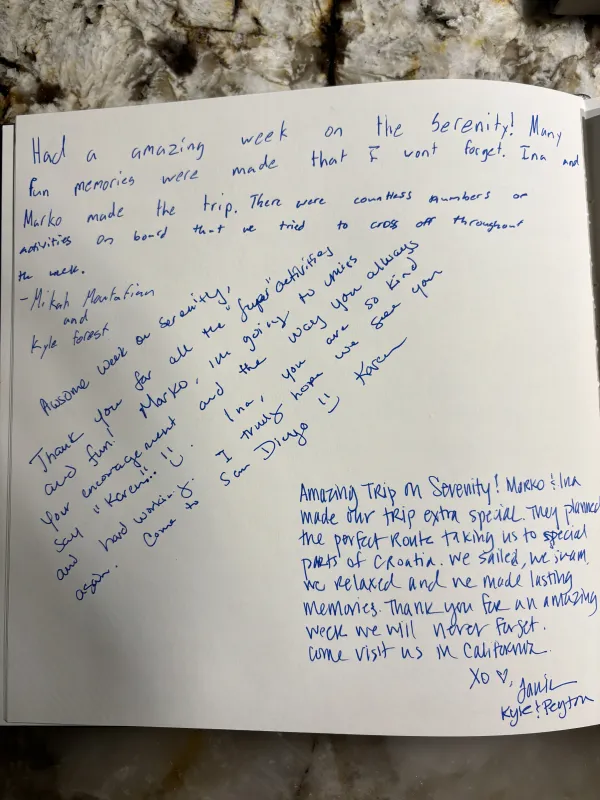 Had a amazing week on the Serenity! Many
fun memories were made that I wont forget. Ina and
Marko made the trip. There were countless numbers of
activities on board that we tried to cross off throughout
the week.
- Mikah
and
Kyle Forest
Awsome week on Serenity,
Thank you for all the "super" activities
and fun! Marko, im going to miss
your encouragement and the way you always
say "Karen"!! :) Ina, you are so kind
and hard working. I truly hope we see you
again. Come to San Diego :) Karen
Amazing Trip on Serenity! Marko & Ina
made our trip extra special. They planned
the perfect Route taking us to special
parts of Croatia. We sailed, we swam,
we relaxed and we made lasting
memories. Thank you for an amazing
week we will never forget.
Come visit us in California.
XO ♡,
Kyle & Peyton